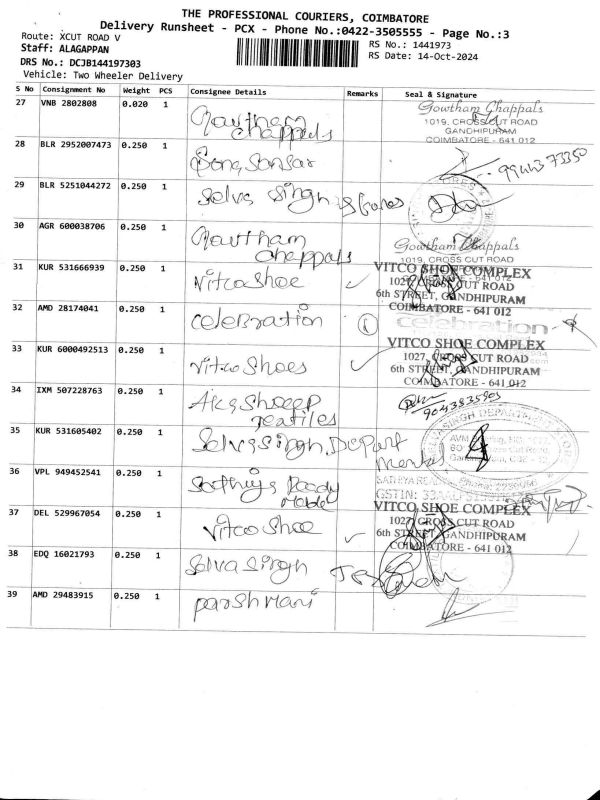 THE PROFESSIONAL COURIERS, COIMBATORE
Delivery Runsheet - PCX - Phone No.:0422-3505555 - Page No.:3
Route: XCUT ROAD V
RS No.: 1441973
Staff: ALAGAPPAN
RS Date: 14-Oct-2024
DRS No.: DCJB144197303
Vehicle: Two Wheeler Delivery
S No Consignment No Weight PCS Consignee Details Remarks Seal & Signature
27 VNB 2802808 0.020 1 Gowtham chappals
Gowtham Chappals
1019, CROSS CUT ROAD
GANDHIPURAM
COIMBATORE - 641 012
28 BLR 2952007473 0.250 1 Sansar
29 BLR 5251044272 0.250 1 Selva Singh stores
30 AGR 600038706 0.250 1 Gowtham chappals
Gowtham Chappals
1019, CROSS CUT ROAD
31 KUR 531666939 0.250 1 Vitco Shoe ✓
VITCO SHOE COMPLEX
1027, CROSS CUT ROAD
6th STREET, GANDHIPURAM
COIMBATORE - 641 012
32 AMD 28174041 0.250 1 celebration
celebration
33 KUR 6000492513 0.250 1 Vitco Shoes ✓
VITCO SHOE COMPLEX
1027, CROSS CUT ROAD
6th STREET, GANDHIPURAM
COIMBATORE - 641 012
34 IXM 507228763 0.250 1 Textiles
9043835905
35 KUR 531605402 0.250 1 Selva Singh Depart mental
36 VPL 949452541 0.250 1 Sathiya Ready
37 DEL 529967054 0.250 1 Vitco Shoe ✓
VITCO SHOE COMPLEX
1027, CROSS CUT ROAD
6th STREET, GANDHIPURAM
COIMBATORE - 641 012
38 EDQ 16021793 0.250 1 Selva Singh
39 AMD 29483915 0.250 1 parshmani